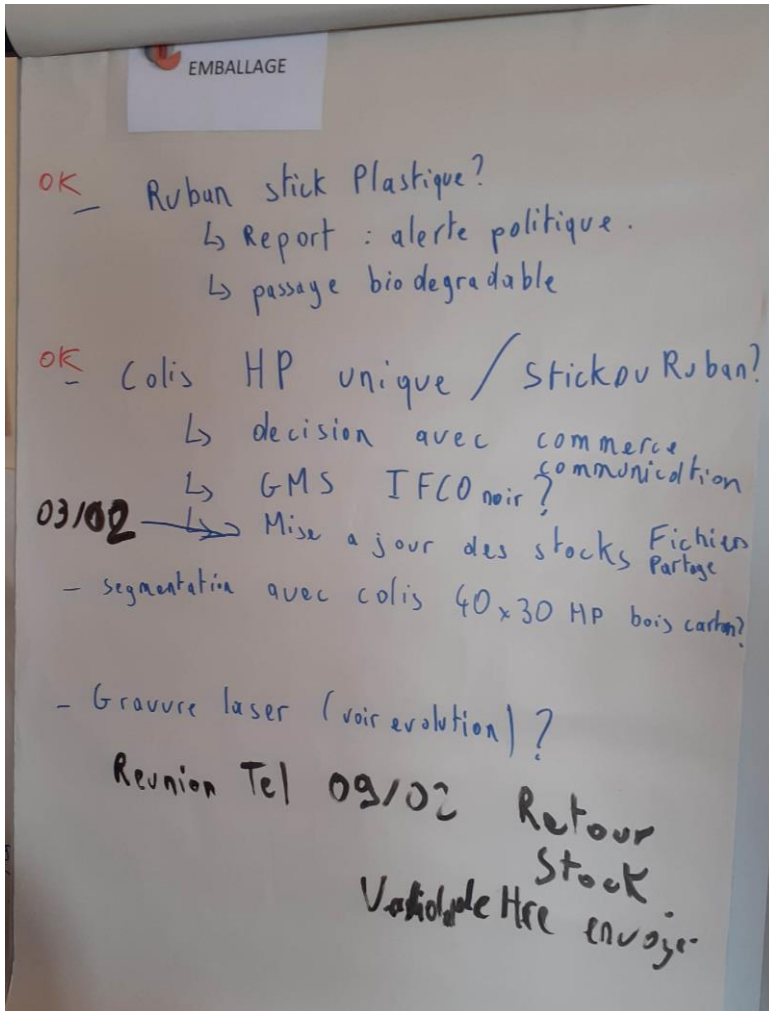 EMBALLAGE
OK
- Ruban stick Plastique?
↳ Report : alerte politique.
↳ passage biodegradable
OK
- Colis HP unique / Stick ou Ruban?
↳ decision avec commerce
communication
↳ GMS IFCO noir?
03/02 → ↳ Mise a jour des stocks Fichiers
Partage
- segmentation avec colis 40x30 HP bois carton?
- Gravure laser (voir evolution)?
Reunion Tel 09/02 Retour
Stock.
envoyé